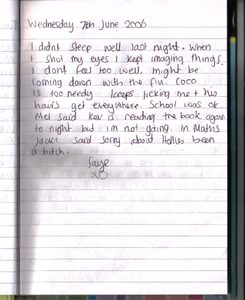 Wednesday 7th June 2006
I didnt sleep well last night. When
I shut my eyes I kept imaging things.
I dont feel too well, might be
coming down with the flu. Coco
is too needy keeps licking me + his
hairs get everywhere. School was ok.
Mel said Kev is reading the book again
to night but im not going. In Maths
Jackz said sorry about Hollies been
a bitch.
Faye